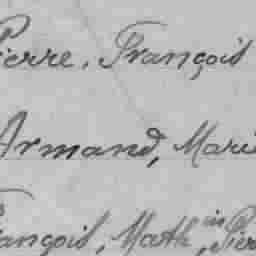 Pierre, François
Armand, Marie
François, Math^in, Pierre